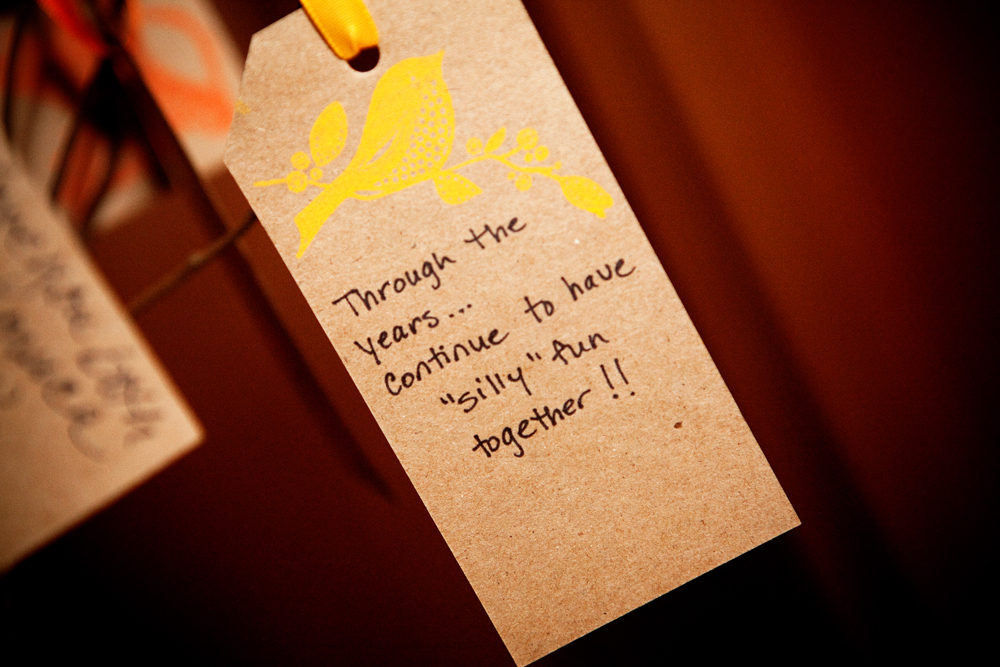 Through the
years...
Continue to have
"silly" fun
together!!